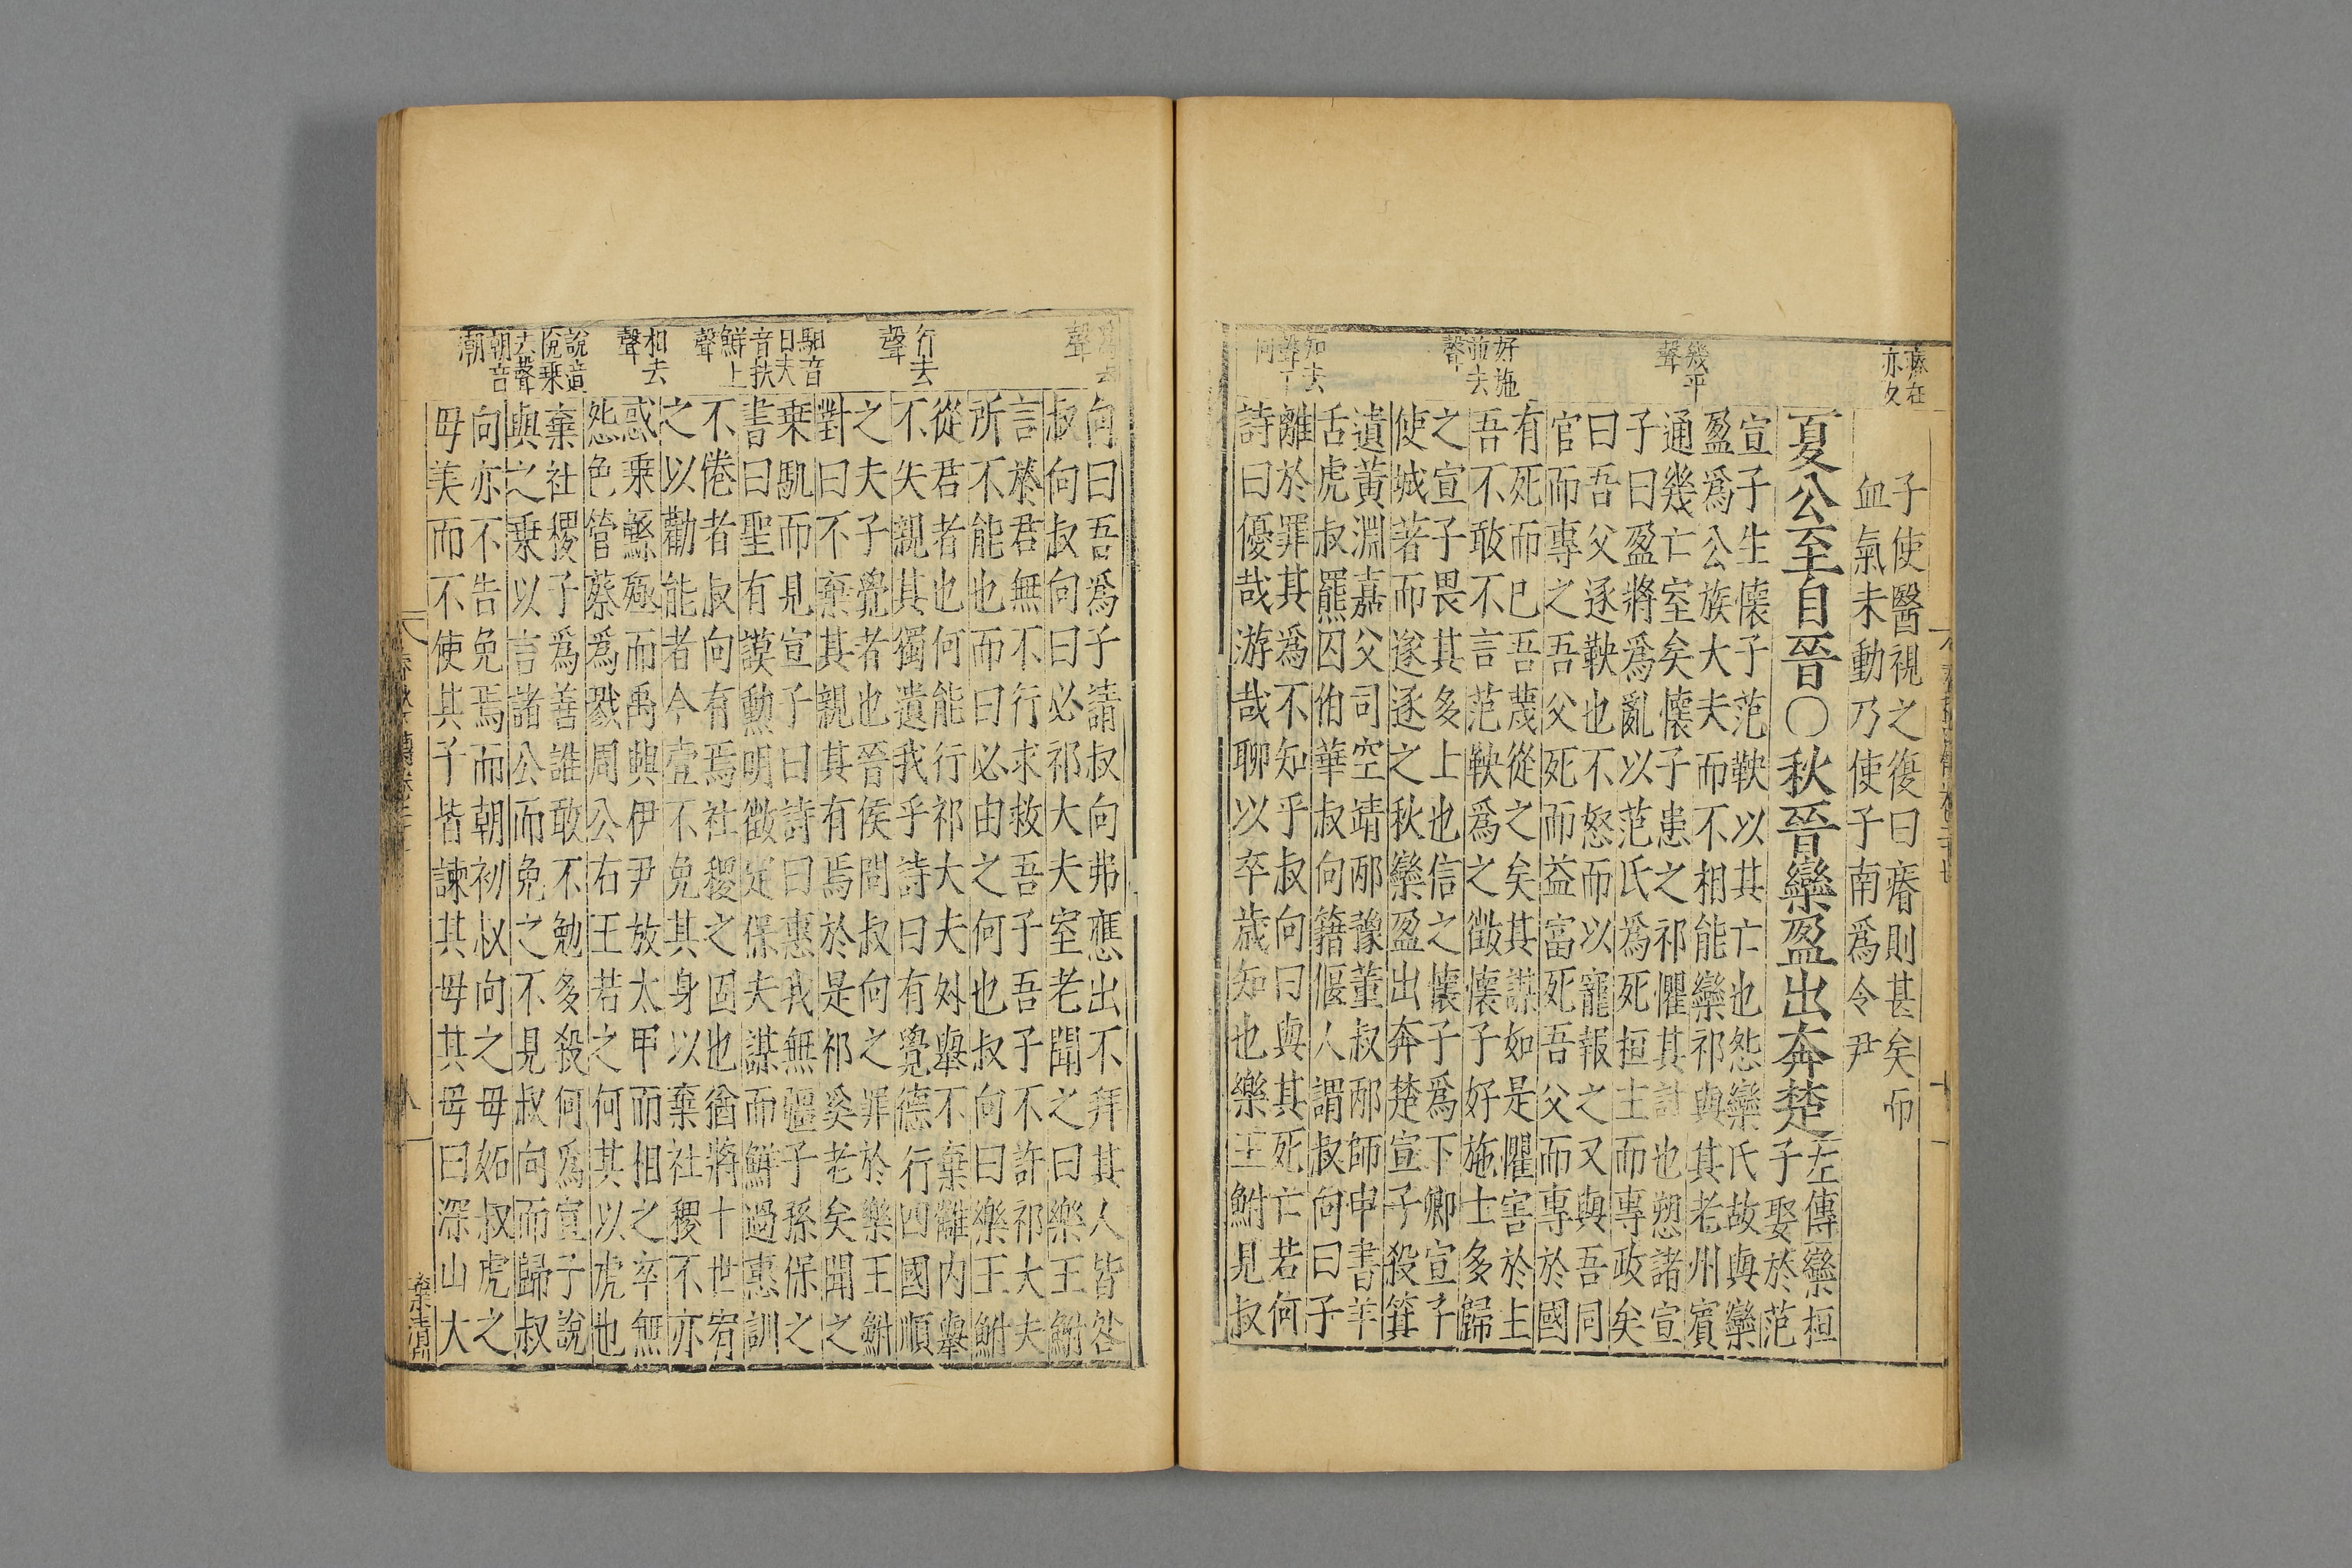 子使醫視之復曰瘠則甚矣而
血氣未動乃使子南爲令尹
夏公至自晉〇秋晉欒盈出奔楚
左傳欒桓
子娶於范
宣子生懷子范鞅以其亡也怨欒氏故與欒
盈爲公族大夫而不相能欒祁與其老州賓
通幾亡室矣懷子患之祁懼其討也愬諸宣
子曰盈將爲亂以范氏爲死桓主而專政矣
曰吾父逐鞅也不怒而以寵報之又與吾同
官而專之吾父死而益富死吾父而專於國
有死而已吾蔑從之矣其謀如是懼害於主
吾不敢不言范鞅爲之徵懷子好施士多歸
之宣子畏其多士也信之懷子爲下卿宣子
使城著而遂逐之秋欒盈出奔楚宣子殺箕
遺黃淵嘉父司空靖邴豫董叔邴師申書羊
舌虎叔羆囚伯華叔向籍偃人謂叔向曰子
離於罪其爲不知乎叔向曰與其死亡若何
詩曰優哉游哉聊以卒歲知也樂王鮒見叔
瘀在
亦久
幾平
聲
好施
並去
聲
知去
聲下
同
向曰吾爲子請叔向弗應出不拜其人皆咎
叔向叔向曰必祁大夫室老聞之曰樂王鮒
言於君無不行求救吾子吾子不許祁大夫
所不能也而曰必由之何也叔向曰樂王鮒
從君者也何能行祁大夫外舉不棄讎內舉
不失親其獨遺我乎詩曰有覺德行四國順
之夫子覺者也晉侯問叔向之罪於樂王鮒
對曰不棄其親其有焉於是祁奚老矣聞之
乗馹而見宣子曰詩曰惠我無疆子孫保之
書曰聖有謨勳明徵定保夫謀而鮮過惠訓
不倦者叔向有焉社稷之固也猶將十世宥
之以勸能者今壹不免其身以棄社稷不亦
惑乗鯀殛而禹興伊尹放太甲而相之卒無
怨色管蔡爲戮周公右王若之何其以虎也
棄社稷子爲善誰敢不勉多殺何爲宣子說
與之乗以言諸公而免之不見叔向而歸叔
向亦不告免焉而朝初叔向之毋妬叔虎之
毋美而不使其子皆諫其毋其毋曰深山大
聲
行去
聲
馹音
日夫
音扶
鮮上
聲
相去
聲
說音
悅乗
去聲
朝音
潮